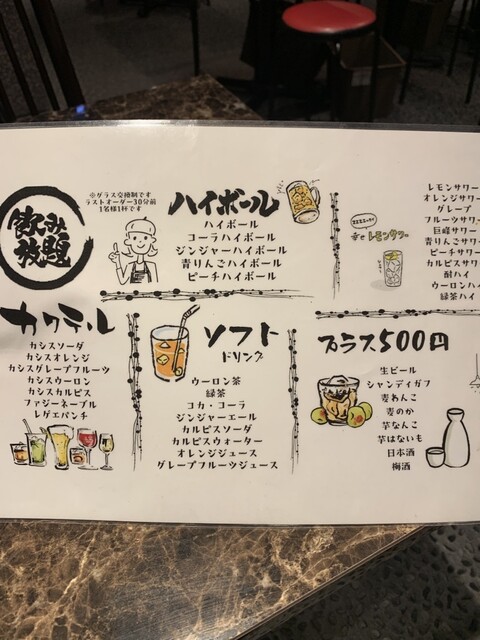 飲み
放題
※グラス交換制です
ラストオーダー30分前
1名様1杯です
ハイボール
ハイボール
コーラハイボール
ジンジャーハイボール
青りんごハイボール
ピーチハイボール
レモンサワー
レモンサワー
オレンジサワー
グレープ
フルーツサワー
巨峰サワー
青りんごサワー
ピーチサワー
カルピスサワー
酎ハイ
ウーロンハイ
緑茶ハイ
カクテル
カシスソーダ
カシスオレンジ
カシスグレープフルーツ
カシスウーロン
カシスカルピス
ファジーネーブル
レゲエパンチ
ソフト
ドリンク
ウーロン茶
緑茶
コカ・コーラ
ジンジャーエール
カルピスソーダ
カルピスウォーター
オレンジジュース
グレープフルーツジュース
プラス500円
生ビール
シャンディガフ
麦わんこ
麦のか
芋なんこ
芋はないも
日本酒
梅酒